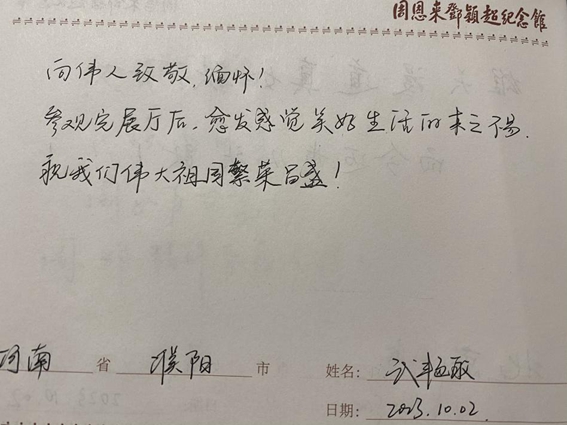 周恩来鄧穎超纪念館
向伟人致敬,缅怀!
参观完展厅后,愈发感觉美好生活的来之不易.
祝我们伟大祖国繁荣昌盛!
河南 省 濮阳 市 姓名: 武
日期: 2023.10.02.